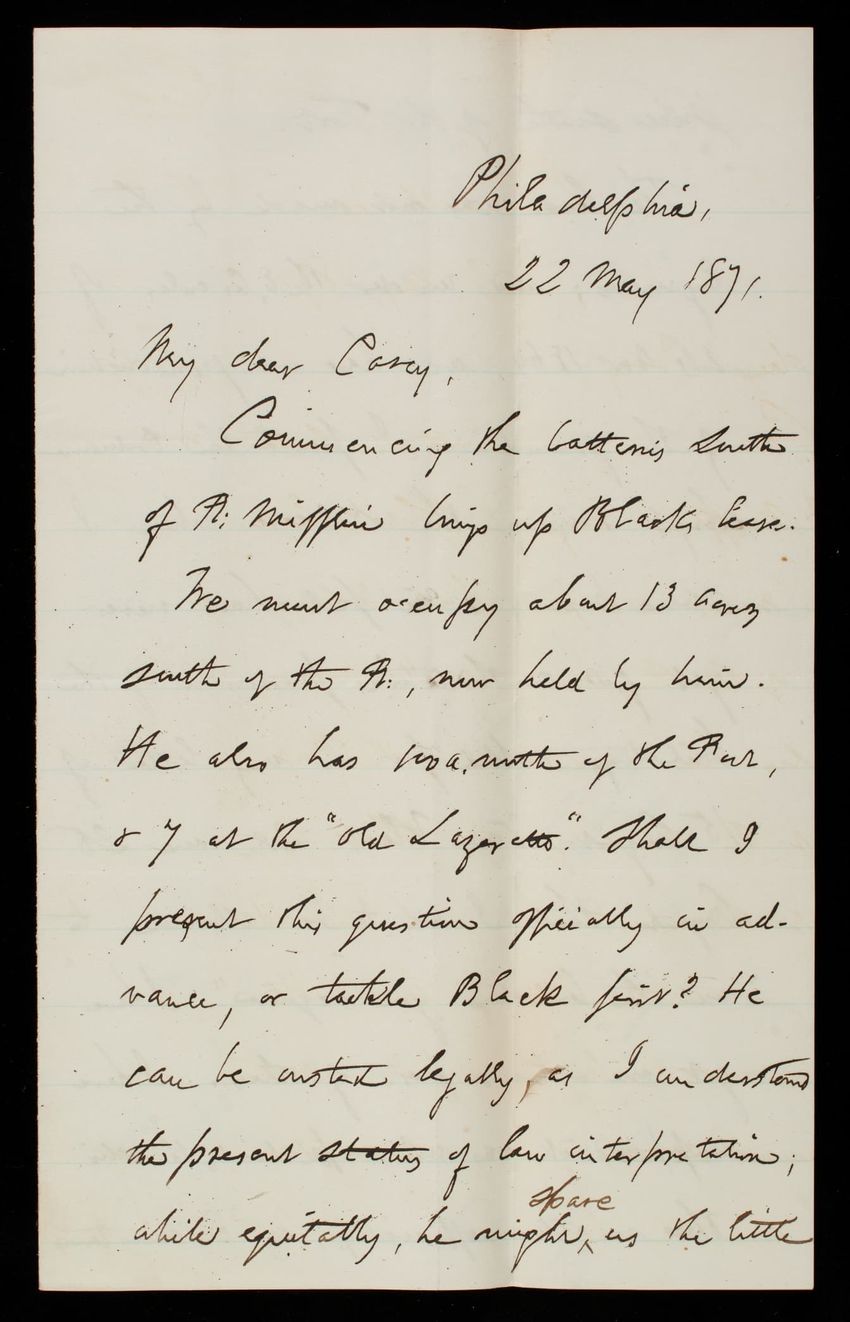 Philadelphia,
22 May 1871.
My dear Casey,
Commencing the batteries south
of Ft: Mifflin brings up Black's lease.
We must occupy about 13 acres
south of the Ft:, now held by him.
He also has 100 a. north of the Fort,
& 7 at the "old Lazaretto". Shall I
present this question officially in ad-
vance, or tackle Black first? He
can be ousted legally, as I understand
the present status of law interpretation;
while equitably, he might spare us the little